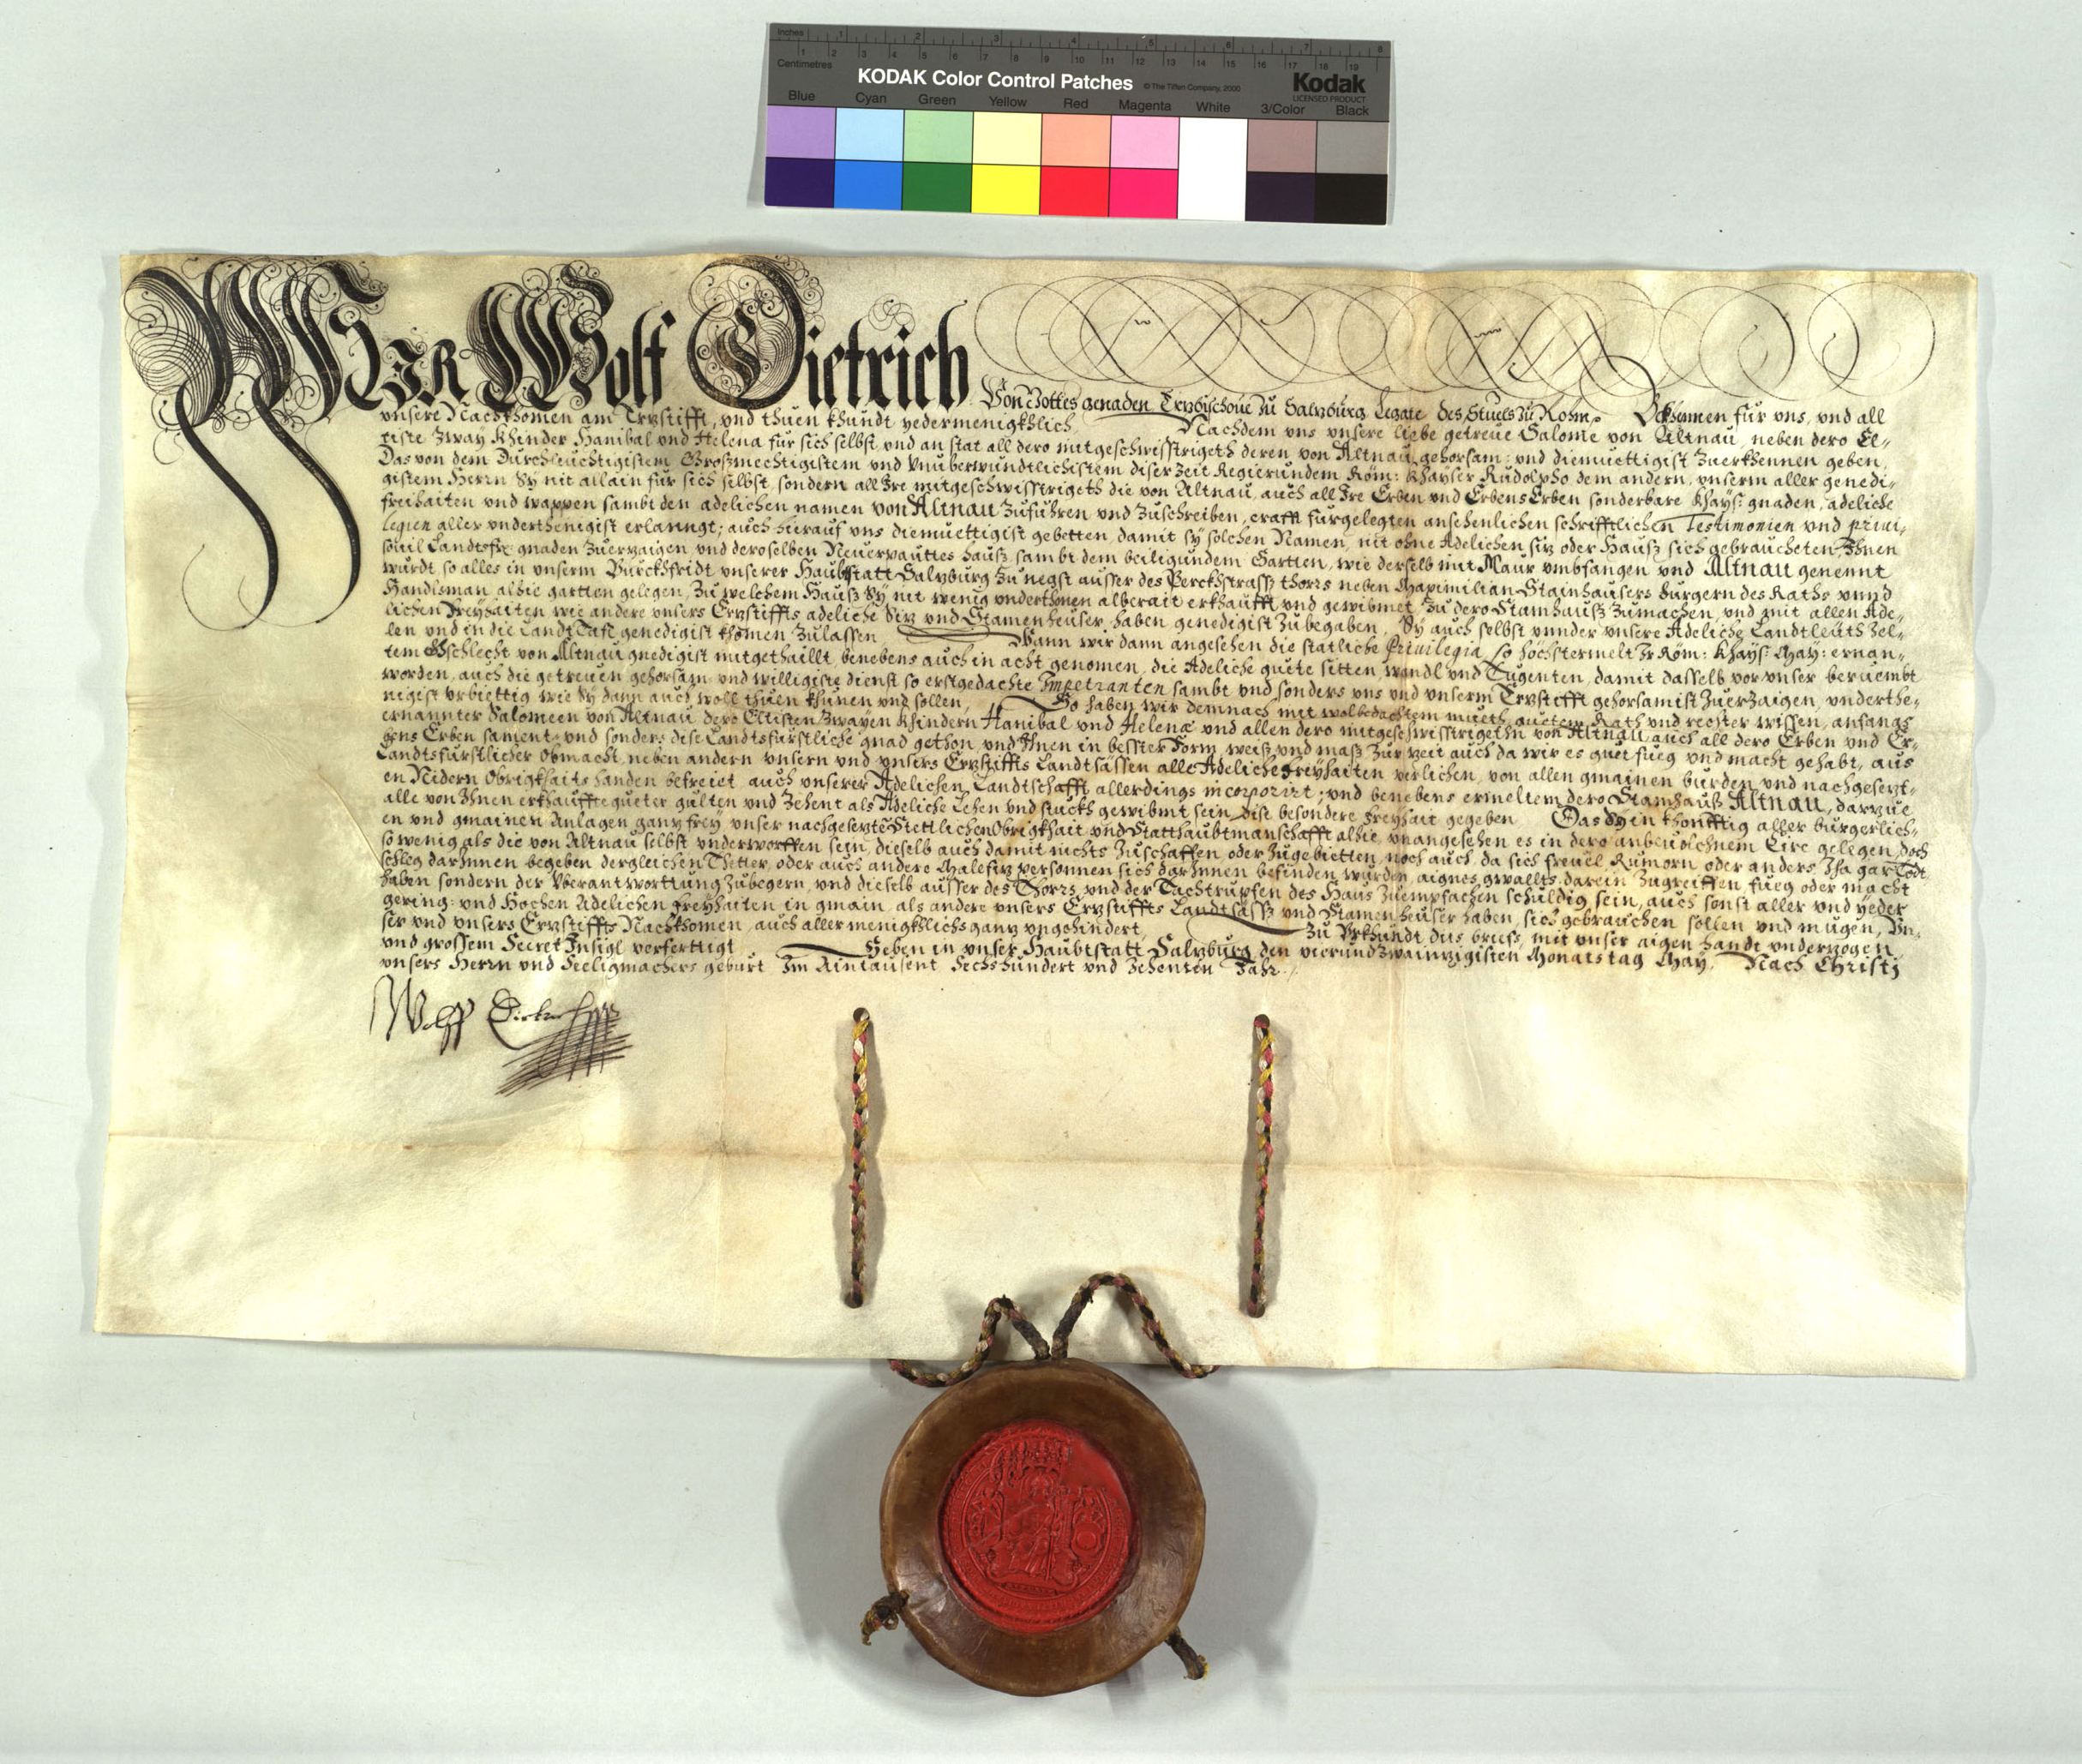 Inches 1 2 3 4 5 6 7 8
1 2 3 4 5 6 7 8 9 10 11 12 13 14 15 16 17 18 19
Centimetres
KODAK Color Control Patches © The Tiffen Company, 2000 Kodak
LICENSED PRODUCT
Blue Cyan Green Yellow Red Magenta White 3/Color Black
WIR Wolf Dietrich Von Gottes genaden Erzbischoue zu Salzburg Legate des Stuels zu Röm. Bekhennen für vns, vnd all
vnsere Nachkhomen am Erzstifft, vnd thuen khundt yedermenigkhlich. Nachdem vns vnsere liebe getreue Salome von Altnau, neben dero El-
tiste zway Khinder Hanibal vnd Helena für sich selbst, vnd an stat all dero mitgeschwisstrigeth deren von Altnau, gehorsam: vnd diemuettigist zuerkhennen geben,
Das von dem Durchleuchtigistem Großmechtigistem vnd Vnüberwundtlichistem diser zeit Regierundem Röm: Khayser Rudolpho dem andern, vnserm aller genedi-
gistem Herrn Sy nit allain für sich selbst, sondern all Ire mitgeschwisstrigeth die von Altnau, auch all Ire Erben vnd ErbensErben sonderbare Khays: gnaden, adeliche
freihaiten vnd wappen sambt den adelichen namen von Altnau zuführen vnd zuschreiben, crafft fürgelegten ansehenlichen schrifftlichen Testimonien vnd priui-
legien aller vnderthenigist erlanngt; auch hierauf vns diemuettigist gebetten, damit sy solchen Namen, nit ohne Adelichen siz oder Hauß sich gebraucheten, Ihnen
souil Landtsfr: gnaden zuerzaigen, vnd deroselben Neuerpauttes hauß sambt dem beiligundem Gartten, wie derselb mit Maur vmbfangen vnd Altnau genennt
wurdt so alles in vnserm Burckhfridt vnserer Haubtstatt Salzburg zu negst ausser des Perckhstrass thors neben Maximilian Stainhausers burgern des Raths vnnd
Handlsman alhie gartten gelegen, zu welchem Hauß Sy nit wenig vnderthonen alberait erkhaufft vnd gewidmet, zu dero Stamhauß zumachen, vnd mit allen Ade-
lichen Freyhaiten wie andere vnsers Erzstiffts adeliche Siz vnd Stamenheuser haben genedigist zubegaben, Sy auch selbst vnnder vnsere Adeliche Landtleüth zel-
len vnd in die LandtTafl genedigist khomen zulassen. Wann wir dann angesehen die statliche Priuilegia, so höchstermelt Ir Röm: Khays: May: ernan-
tem Gschlecht von Altnau gnedigist mitgethaillt, benebens auch in acht genomen, die Adeliche guete sitten, wandl vnd Tugenten, damit dasselb vor vnser beruembt
worden, auch die getreuen gehorsam: vnd willigiste dienst so erstgedachte Impetranten sambt vnd sonders vns vnd vnserm Erzstifft gehorsamist zuerzaigen, vnderthe-
nigist vrbiettig, wie sy dann auch woll thuen khünen vnd sollen, So haben wir demnach mit wolbedachtem mueth, guetem Rath vnd rechter wissen, anfangs
ernannter Salomeen von Altnau, dero Eltisten zwayen Khindern Hanibal vnd Helenæ vnd allen dero mitgeschwisstrigethn von Altnau auch all dero Erben vnd Er-
bens Erben sament: vnd sonders dise Landtsfürstliche gnad gethon, vnd Ihnen in besster Form, weiß, vnd maß zur zeit auch da wir es guet fueg vnd macht gehabt, aus
Landtsfürstlicher Obmacht, neben andern vnsern vnd vnsers Erzstiffts Landtsässen alle Adeliche Freyhaiten verlichen, von allen gmainen burden vnd nachgesezt-
en Nidern Obrigkhaits handen befreiet, auch vnserer Adelichen Landtschafft allerdings incorporirt; vnd benebens ermeltem dero Stamhauß Altnau, darzue
alle von Ihnen erkhauffte gueter gülten vnd zehent als Adeliche Lehen vnd stuckh gewidmt sein, dise besondere Freyhait gegeben. Das Sy in khonfftig aller burgerlich-
en vnd gmainen Anlagen ganz frey, vnser nachgesezte Stettlichen Obrigkhait vnd Statthaubtmanschafft alhie, vnangesehen es in dero gelegen, doch
so wenig als die von Altnau selbst vnderworffen sein, dieselb auch damit nichts zuschaffen, oder zugebietten, noch auch, da sich freuel Rumorn oder anders Iha gar Todt
schleg darInnen begeben dergleichen Thetter, oder auch andere Malefiz personnen sich darInnen befinden wurden, aignes gwallts darein zugreiffen, fueg oder macht
haben sondern der Vberantworttung zubegern, vnd dieselb ausser des Thors, vnd der Tachtrupfen des Haus zuempfachen schuldig sein, auch sonst aller vnd yeder
gering: vnd Hochen Adelichen Freyhaiten in gmain, als andere vnsers Erzstiffts Landtsässz vnd Stamenheuser haben, sich gebrauchen sollen vnd mügen, Vn-
ser vnd vnsers Erzstiffts Nachkhomen, auch allermenigkhlichs ganz vngehindert. Zu Vrkhundt dis brieffs, mit vnser aigen handt vnderzogen,
vnd grossem Secret Insigl verfertigt. Geben in vnser Haubtstatt Salzburg den vierundzwainzigisten Monatstag May. Nach Christj
vnsers Herrn vnd Seeligmachers geburt Im Aintausent Sechshundert vnd zehenten Jahr.
Wolff Dietrich